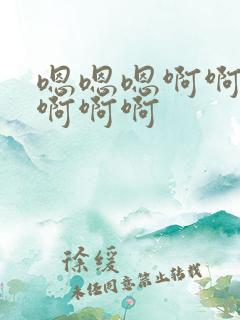 嗯嗯嗯啊啊
啊啊啊
徐缓
未经同意禁止转载